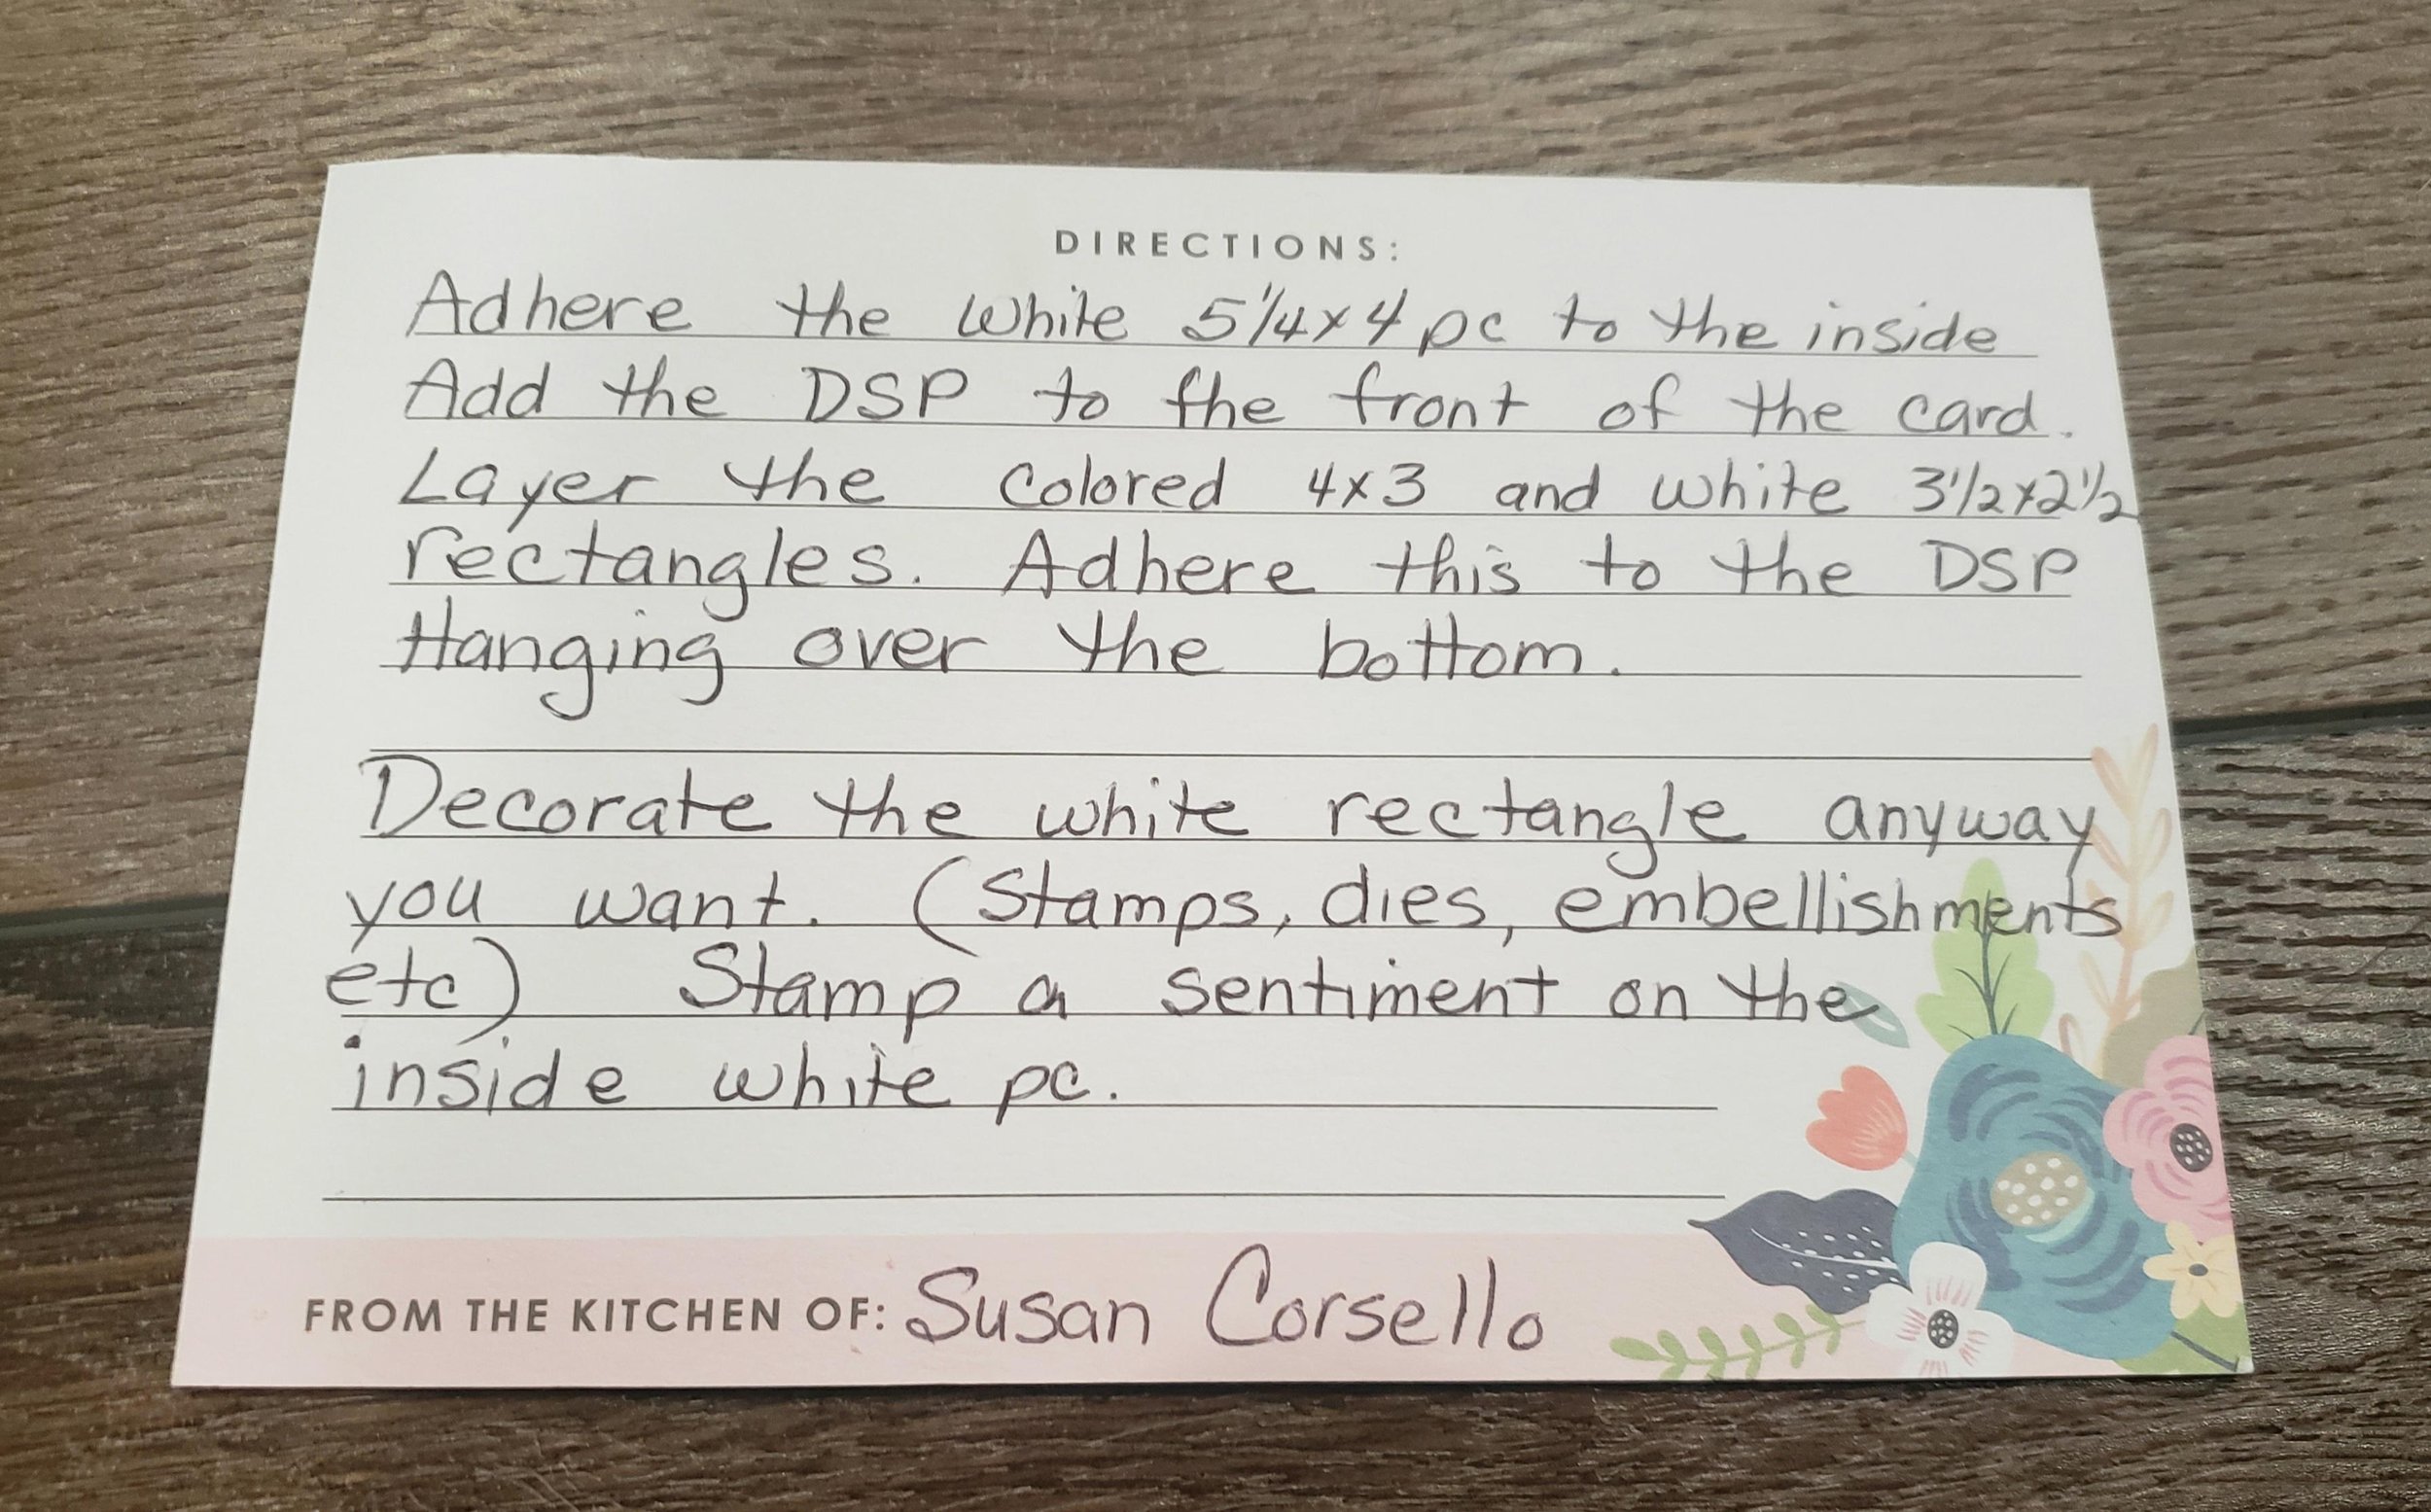 DIRECTIONS:
Adhere the white 5 1/4 x 4 pc to the inside
Add the DSP to the front of the card.
Layer the colored 4x3 and white 3 1/2 x 2 1/2
rectangles. Adhere this to the DSP
Hanging over the bottom.
Decorate the white rectangle anyway
you want. (Stamps, dies, embellishments
etc) Stamp a sentiment on the
inside white pc.
FROM THE KITCHEN OF: Susan Corsello